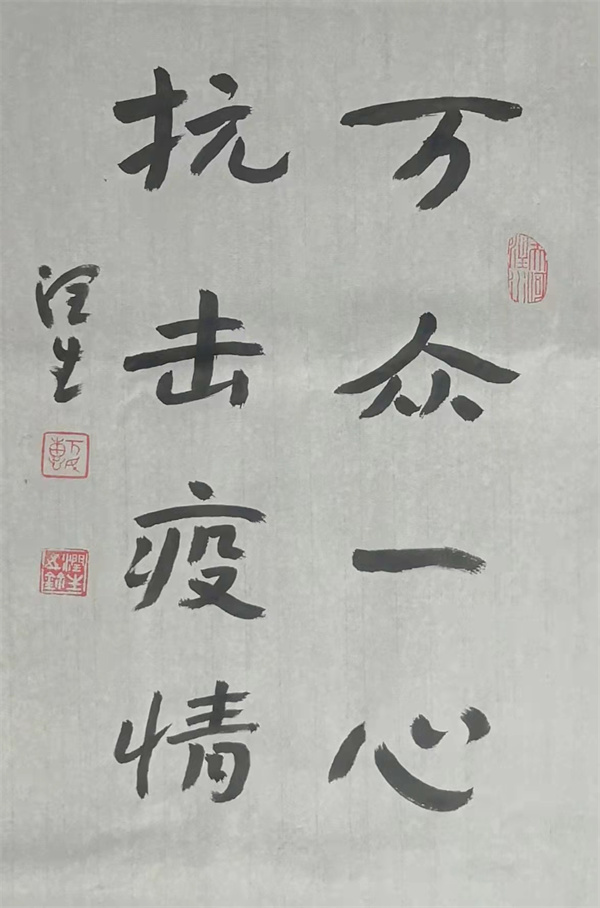 万众一心
抗击疫情
润生